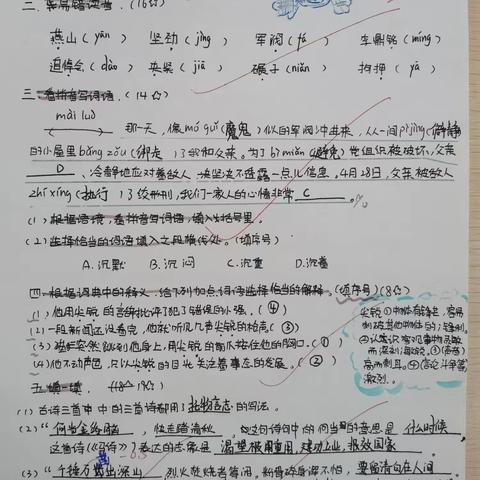 二、易错读音。（16分）
燕山（yān） 坚劲（jìng） 军阀（fá） 车鼎铭（míng）
追悼会（dào） 夹袄（jiā） 碾子（niǎn） 拘押（yā）
三、看拼音写词语。（14分）
mài luò
那一天，像mó guǐ（魔鬼）似的军阀冲进来，从一间pì jìng（僻静）
的小屋里bǎng zǒu（绑走）了我和父亲。为了bì miǎn（避免）党组织被破坏，父亲
D、冷静地应对着敌人，决坚决不透露一点儿信息。4月28日，父亲被敌人
zhí xíng（执行）了绞刑，我们一家人的心情非常C。
（1）根据语境，看拼音写词语，填入括号里。
（2）选择恰当的词语填入文段横线处。（填序号）
A.沉默 B.沉闷 C.沉重 D.沉着
四、根据词典中的释义，给下列加点词语选择恰当的解释。（填序号）（8分）
（1）他用尖锐的言辞批评了犯了错误的小强。（④）
（2）一段新闻还没看完，他就听见几声尖锐的枪声（③）
（3）突然跳到他身上，用尖锐的前爪按住他的胸口。（①）
（4）他不动声色，只以尖锐的目光关注着事态的发展。（②）
尖锐①物体有锋芒，容易
刺破其他物体的；锋利。
②认识客观事物灵敏
而深刻；敏锐。③（声音）
高而刺耳。④（言论、斗争等）
激烈。
五、填一填。（18分）
（1）古诗三首中的三首诗都用了托物言志的写法。
（2）“何当金络脑，快走踏清秋。”这句诗句中的何当的意思是什么时候，
这首诗《马诗》表达的志向是渴望被重用，建功立业，报效国家
（3）“千锤万凿出深山，烈火焚烧若等闲。粉骨碎身浑不怕，要留清白在人间